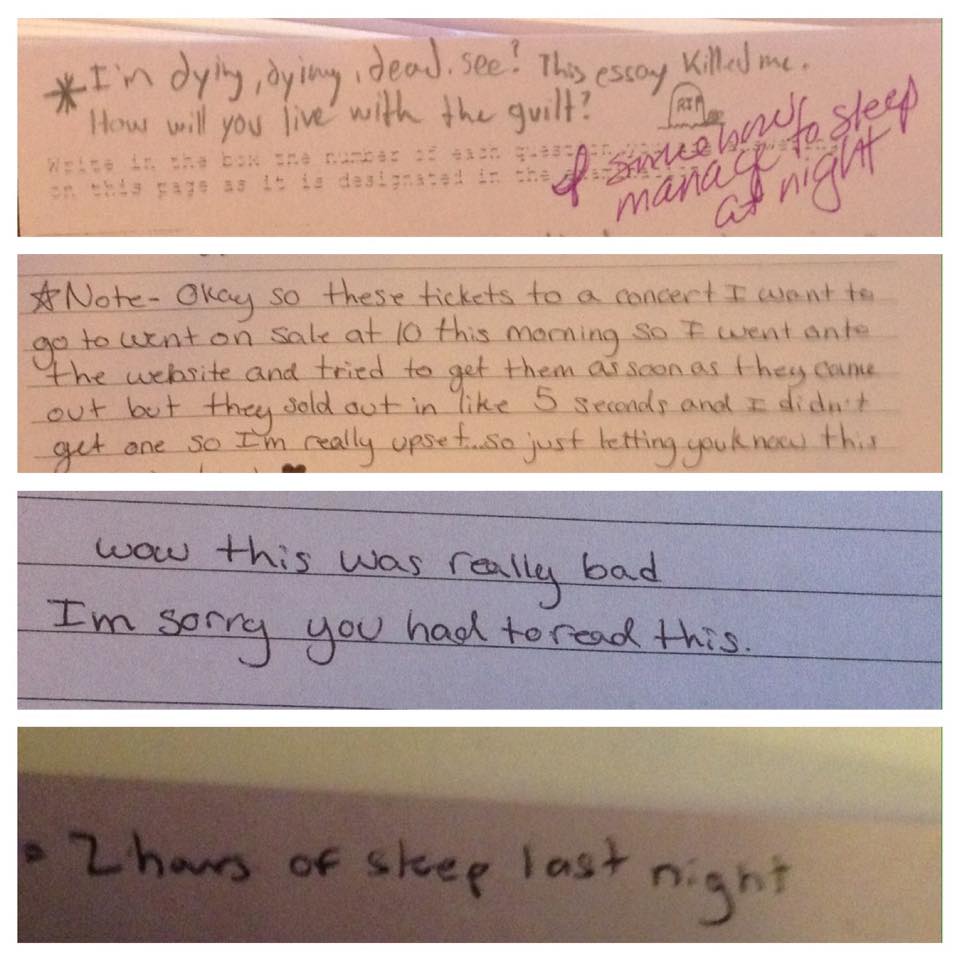 *I'm dying, dying, dead. see? This essay Killed me.
How will you live with the guilt?
RIP
I somehow
manage to sleep
at night
Write in the box the number of each question
on this page as it is designated in the
☆Note- Okay so these tickets to a concert I want to
go to went on sale at 10 this morning so I went onto
the website and tried to get them as soon as they came
out but they sold out in like 5 seconds and I didn't
get one so I'm really upset...so just letting you know this
wow this was really bad
I'm sorry you had to read this.
2 hours of sleep last night